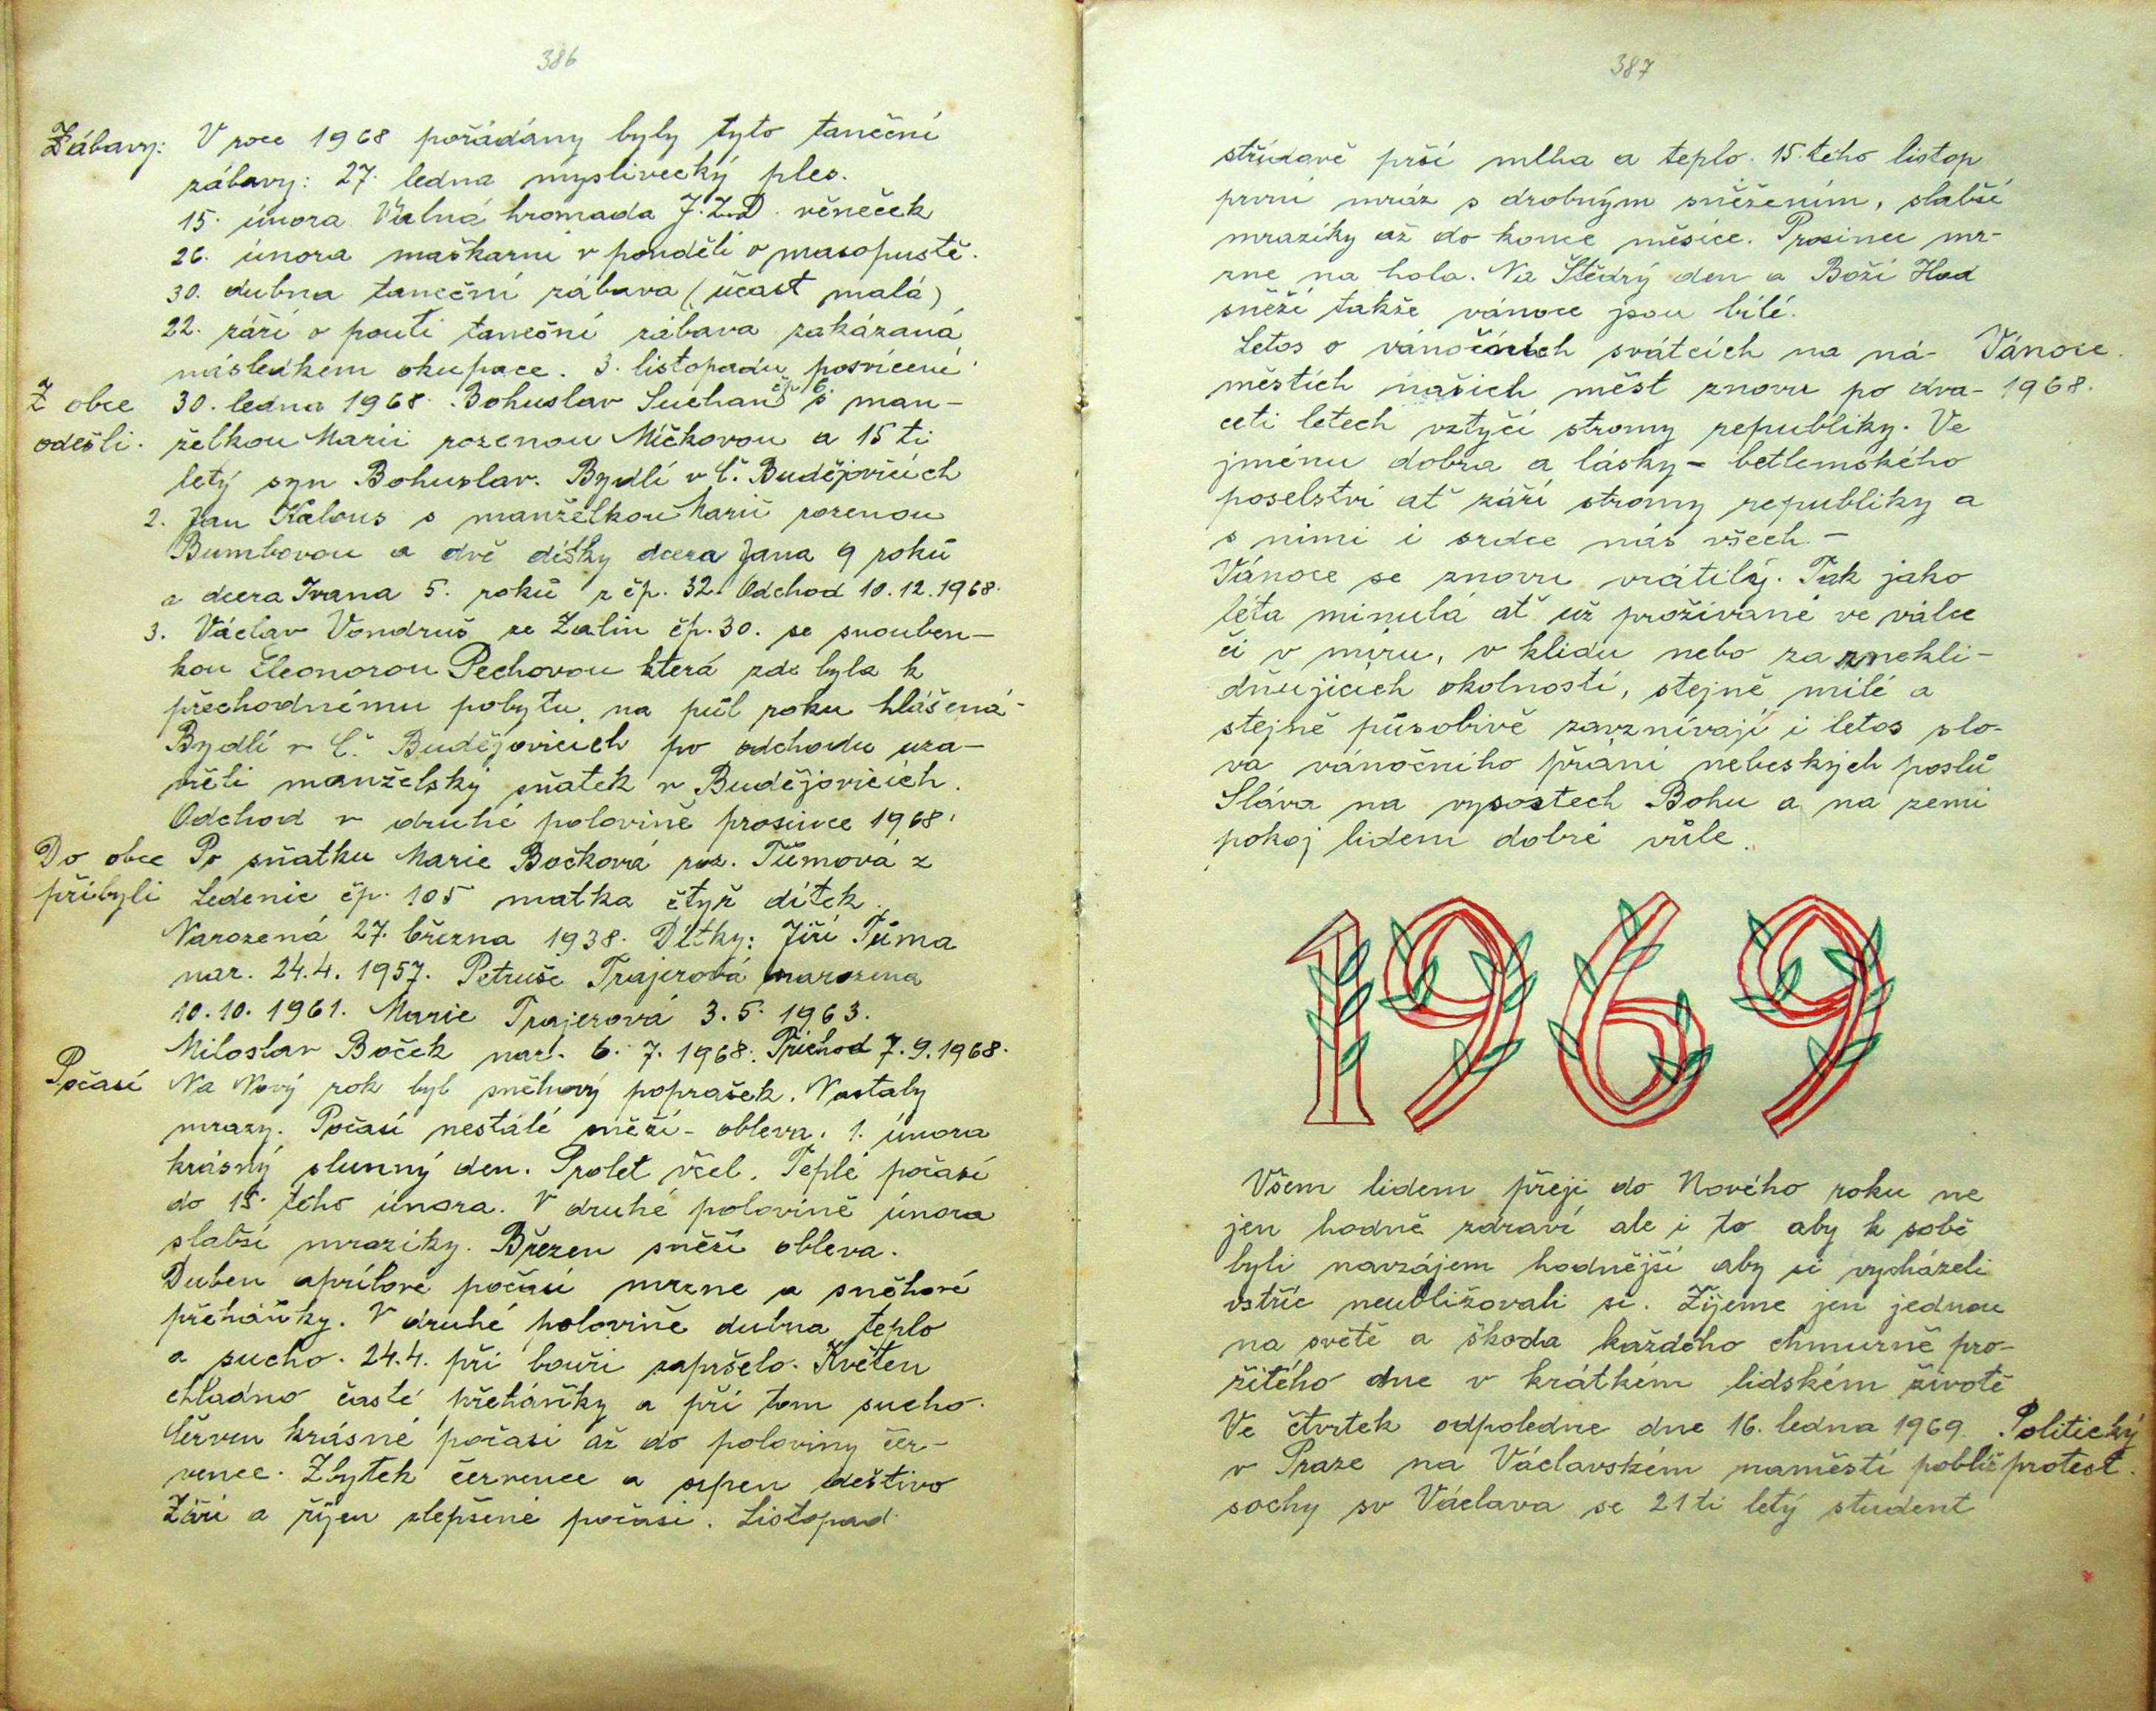 386
Zábavy: V roce 1968 pořádány byly tyto taneční
zábavy: 27. ledna myslivecký ples.
15. února Valná hromada J.Z.D. věneček
26. února maškarní v pondělí o masopustě.
30. dubna taneční zábava (účast malá)
22. září o pouti taneční zábava zakázaná
následkem okupace. 3. listopadu posvícení.
Z obce 30. ledna 1968 Bohuslav Suchan čp 6. s man-
odešli. želkou Marií rozenou Míčkovou a 15 ti
letý syn Bohuslav. Bydlí v Č. Budějovicích
2. Jan Kalous s manželkou Marií rozenou
Bumbovou a dvě dítky dcera Jana 9 roků
a dcera Ivana 5. roků z čp. 32. Odchod 10.12.1968.
3. Václav Vondruš ze Zalin čp. 30. se snouben-
kou Eleonorou Pechovou která zde byla k
přechodnému pobytu na půl roku hlášená
Bydlí v Č. Budějovicích po odchodu uza-
vřeli manželský sňatek v Budějovicích.
Odchod v druhé polovině prosince 1968.
Do obce Po sňatku Marie Bočková roz. Tůmová z
přibyli Ledenic čp. 105 matka čtyř dítek.
Narozená 27. března 1938. Dítky: Jiří Tůma
nar. 24.4. 1957. Petruše Trajerová narozena
10.10. 1961. Marie Trajerová 3. 5. 1963.
Miloslav Boček nar. 6. 7. 1968. Příchod 7.9.1968.
Počasí Na Nový rok byl sněhový poprašek. Nastaly
mrazy. Počasí nestálé sněží - obleva. 1. února
krásný slunný den. Prolet včel. Teplé počasí
do 15. tého února. V druhé polovině února
slabší mrazíky. Březen sněží obleva.
Duben aprílové počasí mrzne a sněhové
přeháňky. V druhé polovině dubna teplo
a sucho. 24.4. při bouři zapršelo. Květen
chladno časté přeháňky a při tom sucho.
Červen krásné počasí až do poloviny čer-
vence. Zbytek července a srpen deštivo
Září a říjen zlepšené počasí. Listopad
387
střídavě prší mlha a teplo. 15. tého listop
první mráz s drobným sněžením, slabší
mrazíky až do konce měsíce. Prosinec mr-
zne na holo. Na Štědrý den a Boží Hod
sněží takže vánoce jsou bílé.
Letos o vánočních svátcích na ná- Vánoce.
městích našich měst znovu po dva- 1968.
ceti letech vztyčí stromy republiky. Ve
jménu dobra a lásky - betlemského
poselství ať září stromy republiky a
s nimi i srdce nás všech -
Vánoce se znovu vrátily. Tak jako
léta minulá ať už prožívané ve válce
či v míru, v klidu nebo za znekli-
dňujících okolností, stejně milé a
stejně působivě zavznívají i letos slo-
va vánočního přání nebeských poslů
Sláva na vysostech Bohu a na zemi
pokoj lidem dobré vůle.
1969
Všem lidem přeji do Nového roku ne
jen hodně zdraví ale i to aby k sobě
byli navzájem hodnější aby si vycházeli
vstříc neubližovali si. Žijeme jen jednou
na světě a škoda každého chmurně pro-
žitého dne v krátkém lidském životě
Ve čtvrtek odpoledne dne 16. ledna 1969. Politický
v Praze na Václavském naměstí poblíž protest.
sochy sv Václava se 21 ti letý student